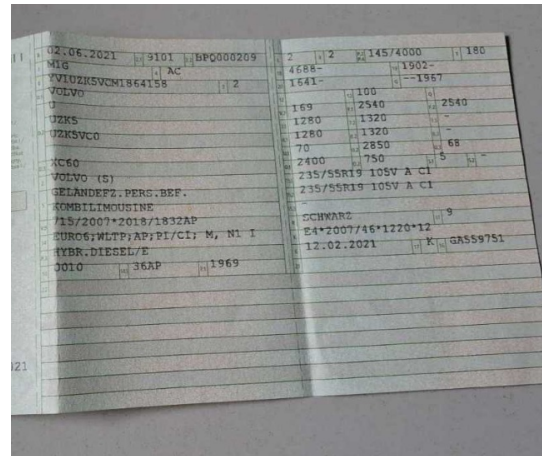 02.06.2021 9101 BPQ000209
M1G AC
YV1UZK5VCM1864158 2
VOLVO
U
UZK5
UZK5VC0
XC60
VOLVO (S)
GELÄNDEFZ.PERS.BEF.
KOMBILIMOUSINE
715/2007*2018/1832AP
EURO6;WLTP;AP;PI/CI; M, N1 I
HYBR.DIESEL/E
0010 36AP 1969
2 2 145/4000 180
4688- 1902-
1641- --1967
100
169 2540 2540
1280 1320 -
1280 1320 -
70 2850 68
2400 750 5 -
235/55R19 105V A C1
235/55R19 105V A C1
-
SCHWARZ 9
E4*2007/46*1220*12
12.02.2021 K GA559751
021